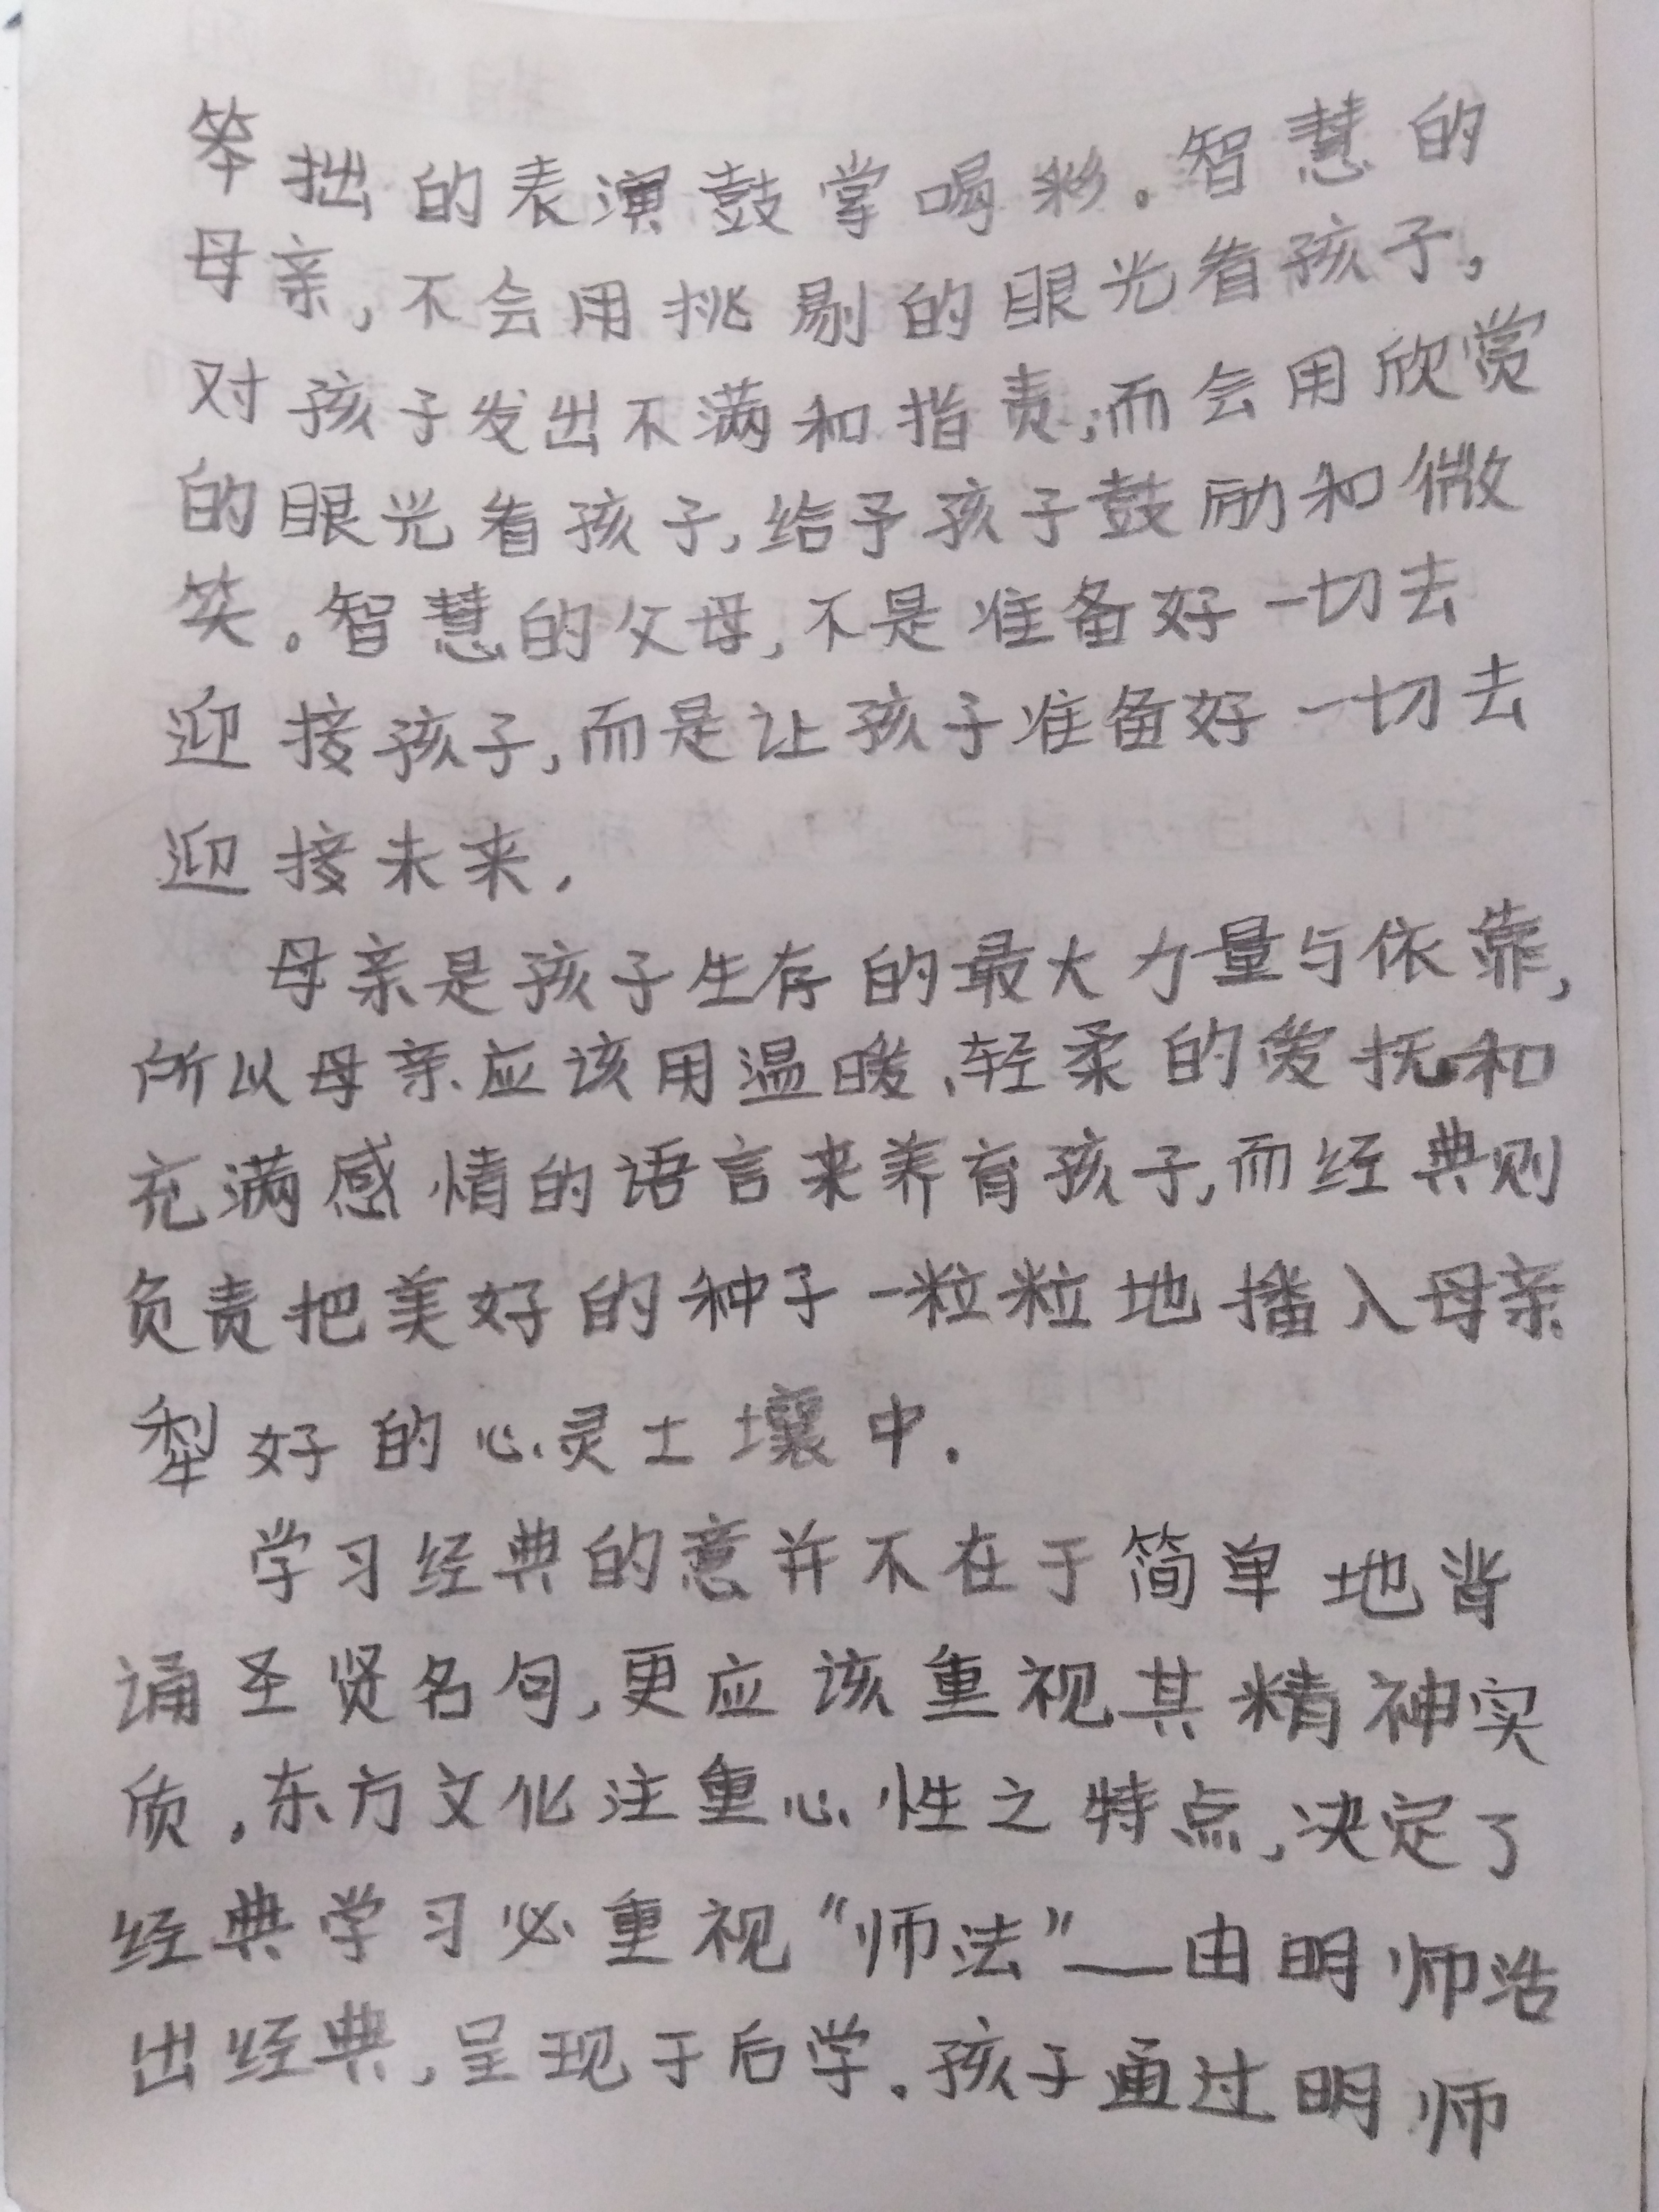 笨拙的表演鼓掌喝彩。智慧的
母亲,不会用挑剔的眼光看孩子,
对孩子发出不满和指责,而会用欣赏
的眼光看孩子,给予孩子鼓励和微
笑。智慧的父母,不是准备好一切去
迎接孩子,而是让孩子准备好一切去
迎接未来.
母亲是孩子生存的最大力量与依靠,
所以母亲应该用温暖、轻柔的爱抚和
充满感情的语言来养育孩子,而经典则
负责把美好的种子一粒粒地播入母亲
犁好的心灵土壤中.
学习经典的意并不在于简单地背
诵圣贤名句,更应该重视其精神实
质.东方文化注重心性之特点,决定了
经典学习必重视“师法”—由明师活
出经典,呈现于后学.孩子通过明师